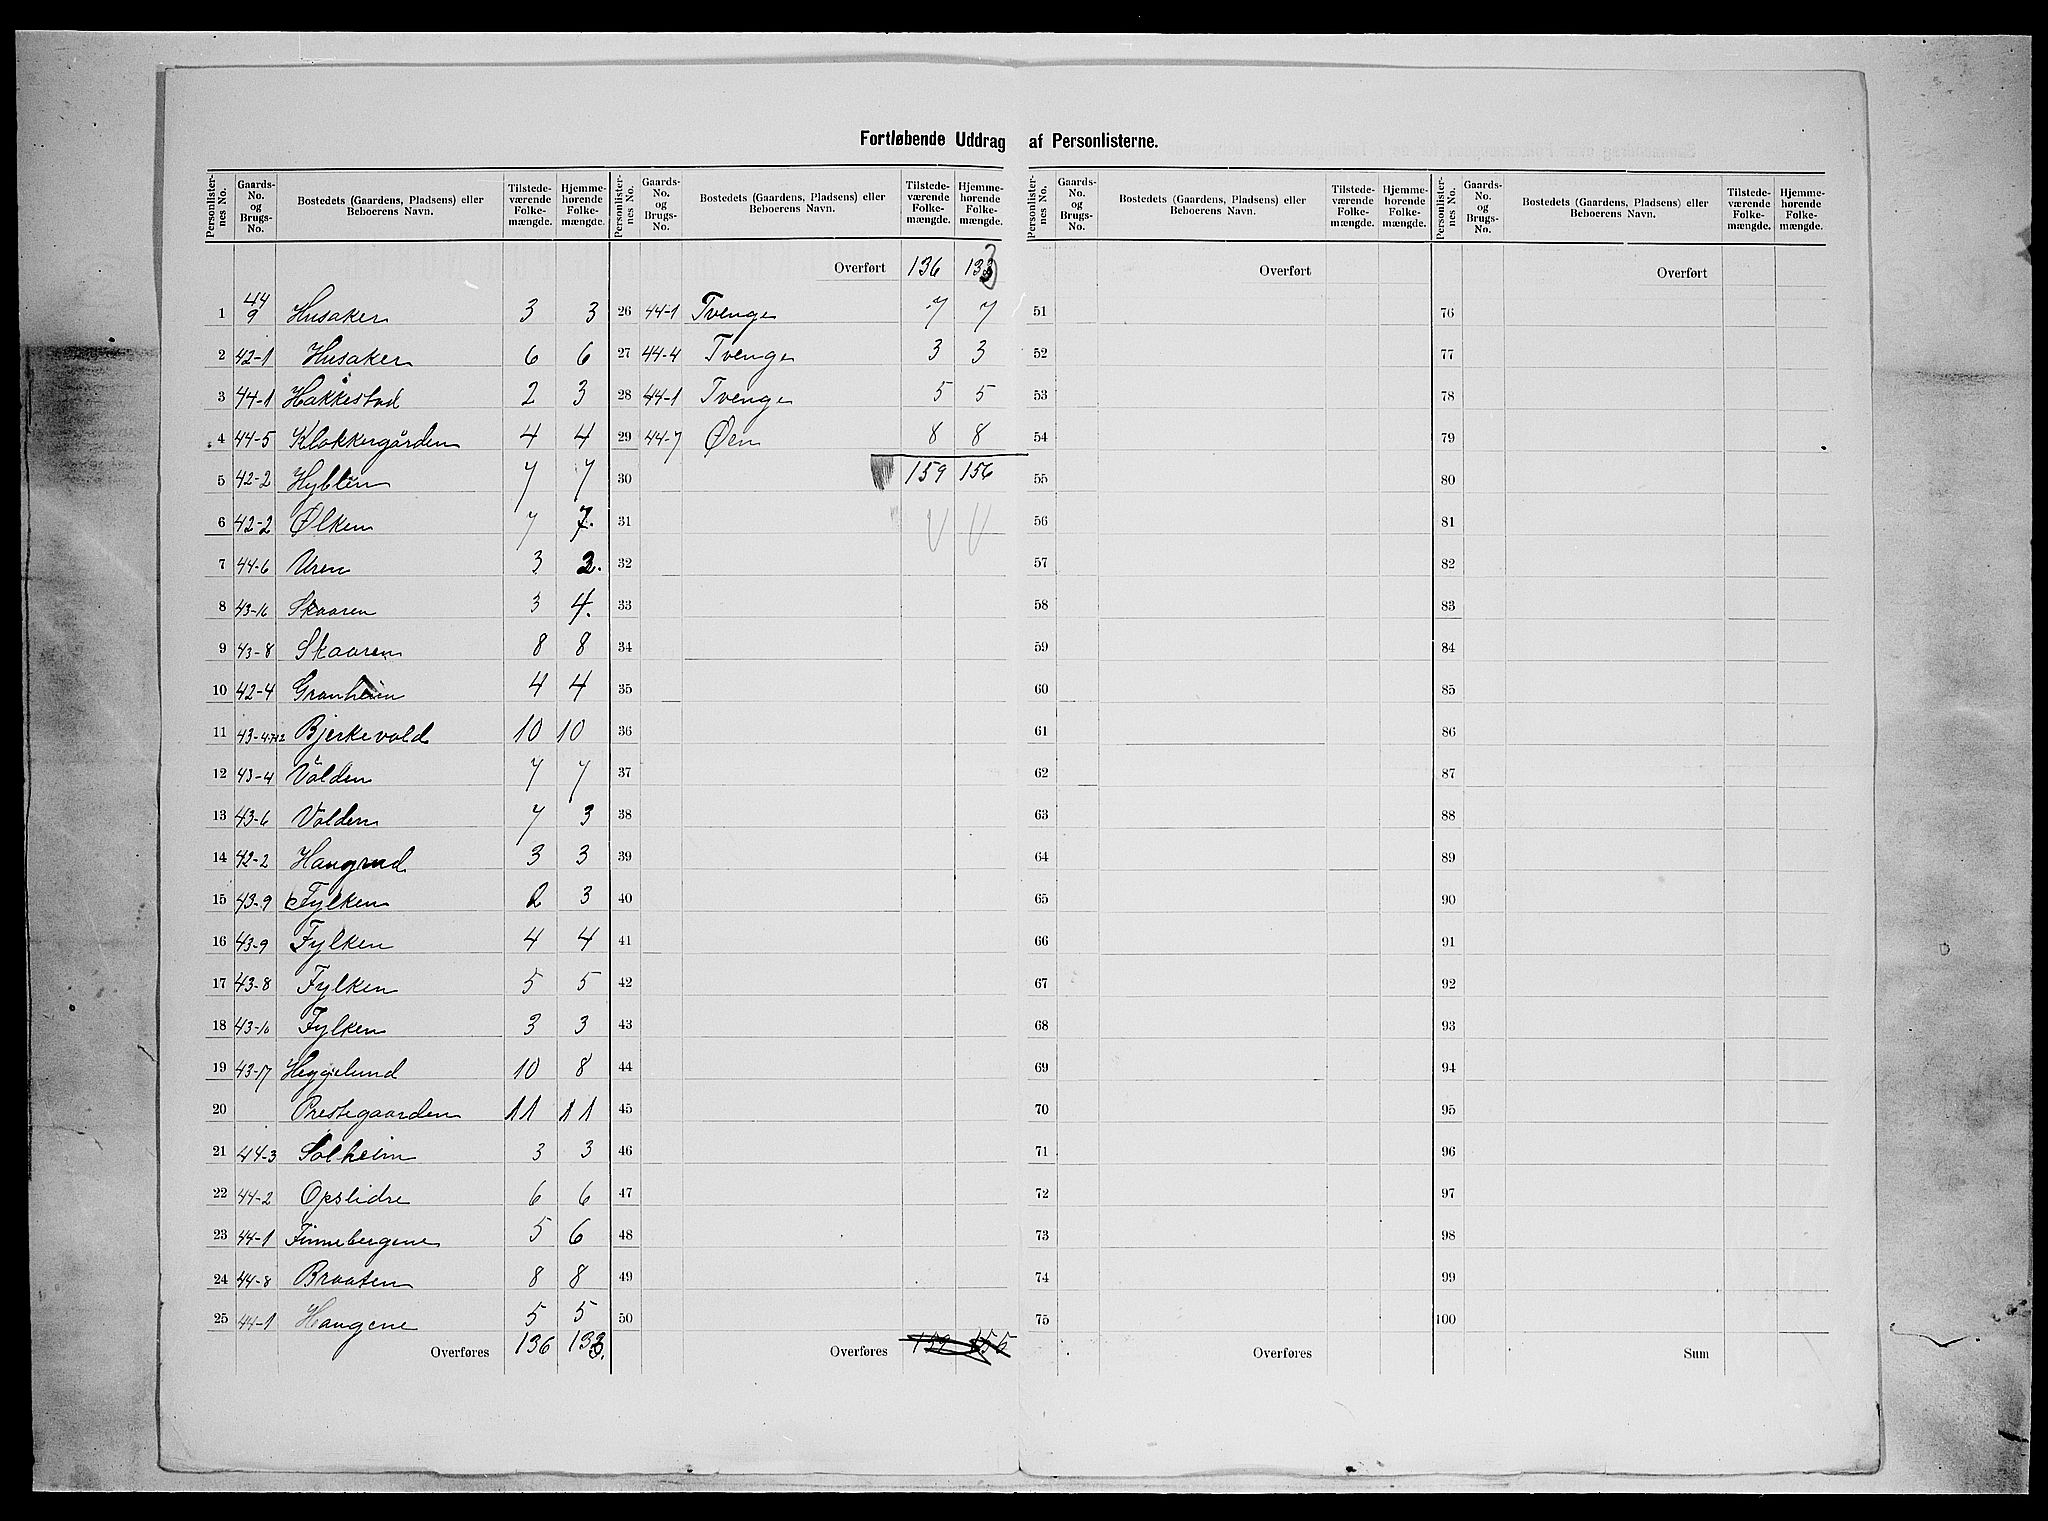 Fortløbende Uddrag af Personlisterne.
Personlister-nes No. | Gaards-No. og Brugs-No. | Bostedets (Gaardens, Pladsens) eller Beboerens Navn. | Tilstede-værende Folke-mængde. | Hjemme-hørende Folke-mængde.
1 44 9 Husaker 3 3
2 42-1 Husaker 6 6
3 44-1 Håkkestad 2 3
4 44-5 Klokkergården 4 4
5 42-2 Hyblin 7 7
6 42-2 Ølken 7 7.
7 44-6 Uren 3 2.
8 43-16 Skaaren 3 4.
9 43-8 Skaaren 8 8
10 42-4 Granheim 4 4
11 43-4.7+12 Bjerkevold 10 10
12 43-4 Volden 7 7
13 43-6 Volden 7 3
14 42-2 Haugrud 3 3
15 43-9 Fylken 2 3
16 43-9 Fylken 4 4
17 43-8 Fylken 5 5
18 43-10 Fylken 3 3
19 43-17 Heggelund 10 8
20 Prestegaarden 11 11
21 44-3 Solheim 3 3
22 44-2 Opslidre 6 6
23 44-1 Finnebergene 5 6
24 44-8 Braaten 8 8
25 44-1 Haugene 5 5
Overføres 136 133.
Personlister-nes No. | Gaards-No. og Brugs-No. | Bostedets (Gaardens, Pladsens) eller Beboerens Navn. | Tilstede-værende Folke-mængde. | Hjemme-hørende Folke-mængde.
Overført 136 133
26 44-1 Tvenge 7 7
27 44-4 Tvenge 3 3
28 44-1 Tvenge 5 5
29 44-7 Øen 8 8
30 159 156
31
32
33
34
35
36
37
38
39
40
41
42
43
44
45
46
47
48
49
50
Overføres 159 155
Personlister-nes No. | Gaards-No. og Brugs-No. | Bostedets (Gaardens, Pladsens) eller Beboerens Navn. | Tilstede-værende Folke-mængde. | Hjemme-hørende Folke-mængde.
Overført
51
52
53
54
55
56
57
58
59
60
61
62
63
64
65
66
67
68
69
70
71
72
73
74
75
Overføres
Personlister-nes No. | Gaards-No. og Brugs-No. | Bostedets (Gaardens, Pladsens) eller Beboerens Navn. | Tilstede-værende Folke-mængde. | Hjemme-hørende Folke-mængde.
Overført
76
77
78
79
80
81
82
83
84
85
86
87
88
89
90
91
92
93
94
95
96
97
98
99
100
Sum